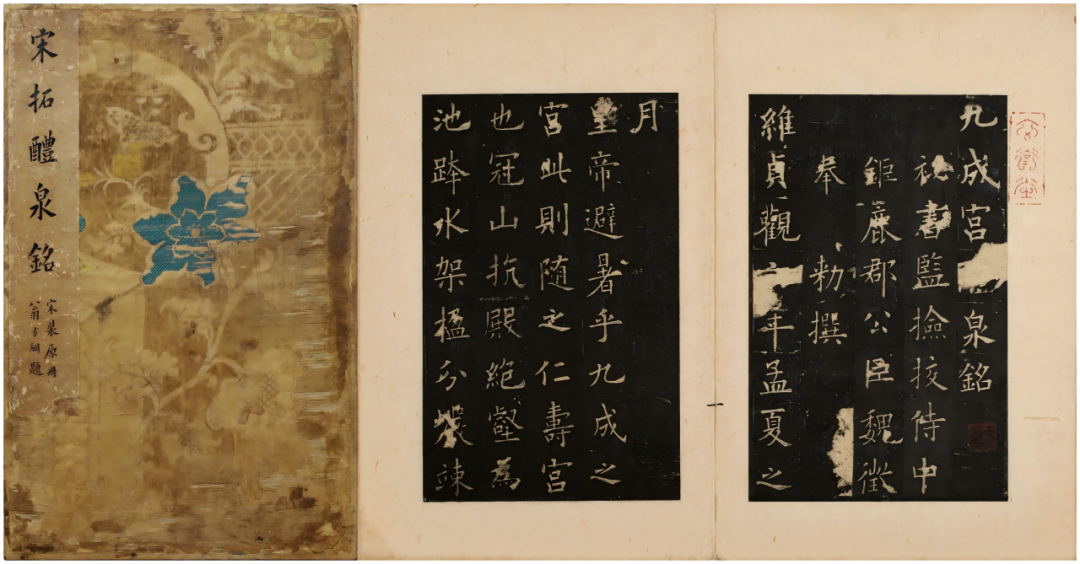 宋拓醴泉銘
宋裝原冊
翁方綱題
九成宮泉銘
秘書監撿挍侍中
鉅鹿郡公臣魏徵
奉勅撰
維貞觀年孟夏之
月
皇帝避暑乎九成之
宮此則随之仁壽宮
也冠山抗殿絕壑為
池跨水架楹分巖竦